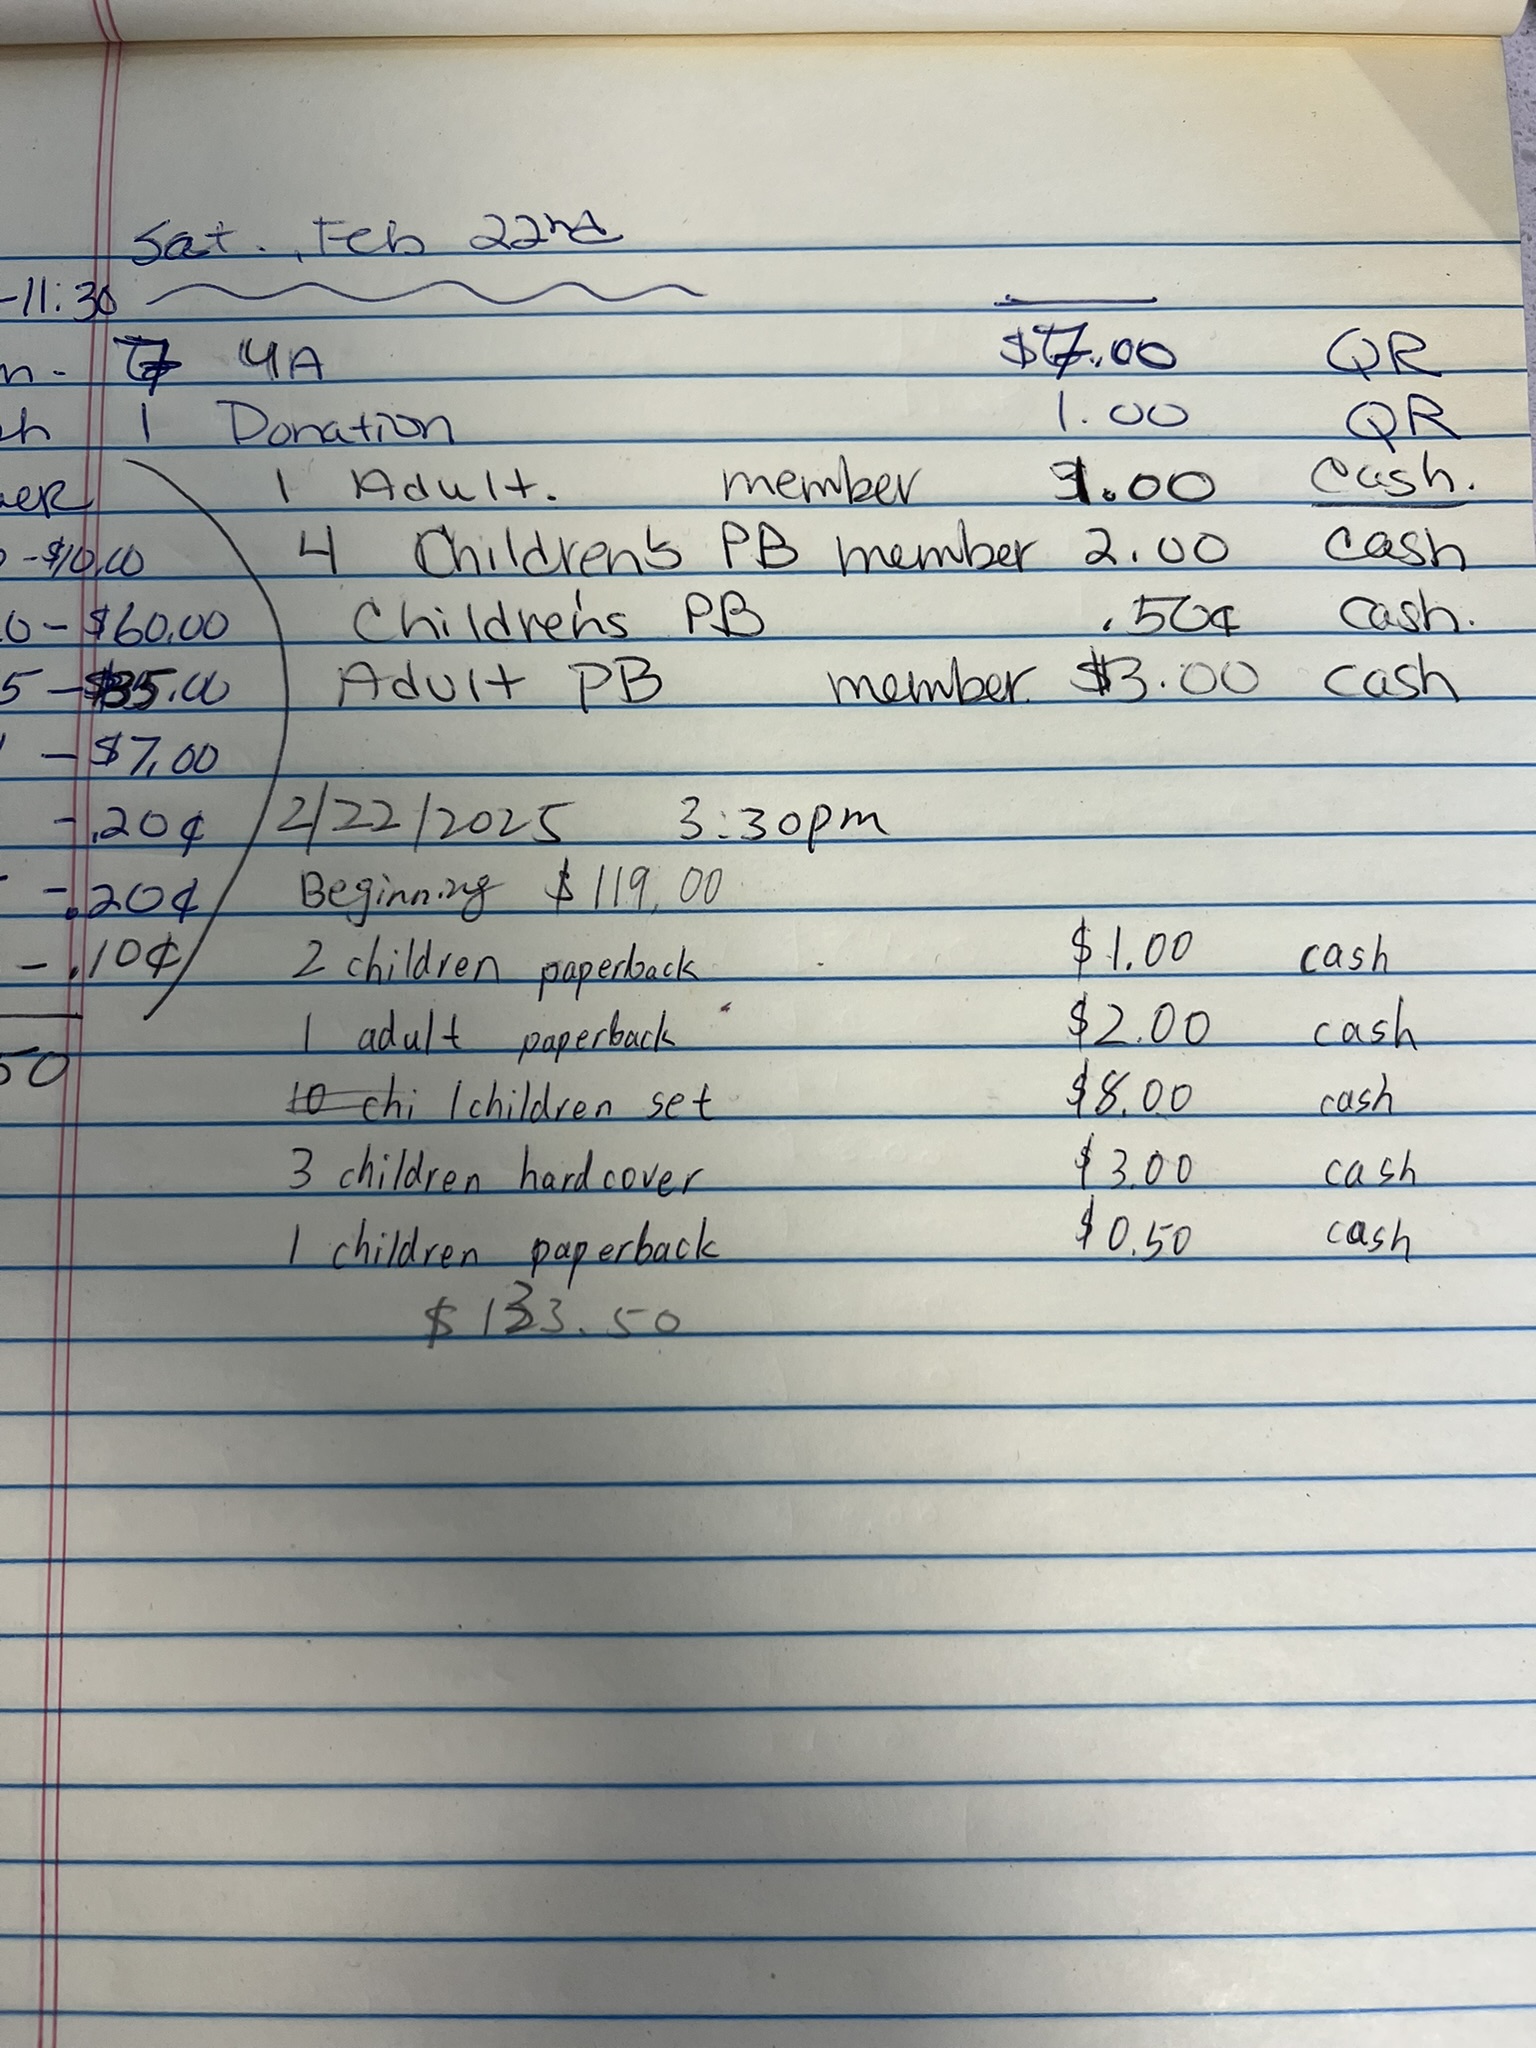 Sat., Feb 22nd
-11:30
n- 7 4A $7.00 QR
ch 1 Donation 1.00 QR
1 Adult. member 1.00 cash.
-$10.00 4 Children's PB member 2.00 cash
0-$60.00 Children's PB .50¢ cash.
5-$35.00 Adult PB member $3.00 cash
-$7.00
-.20¢ 2/22/2025 3:30pm
-.20¢ Beginning $119.00
-.10¢ 2 children paperback $1.00 cash
1 adult paperback $2.00 cash
50 10 chi 1 children set $8.00 cash
3 children hardcover $3.00 cash
1 children paperback $0.50 cash
$133.50